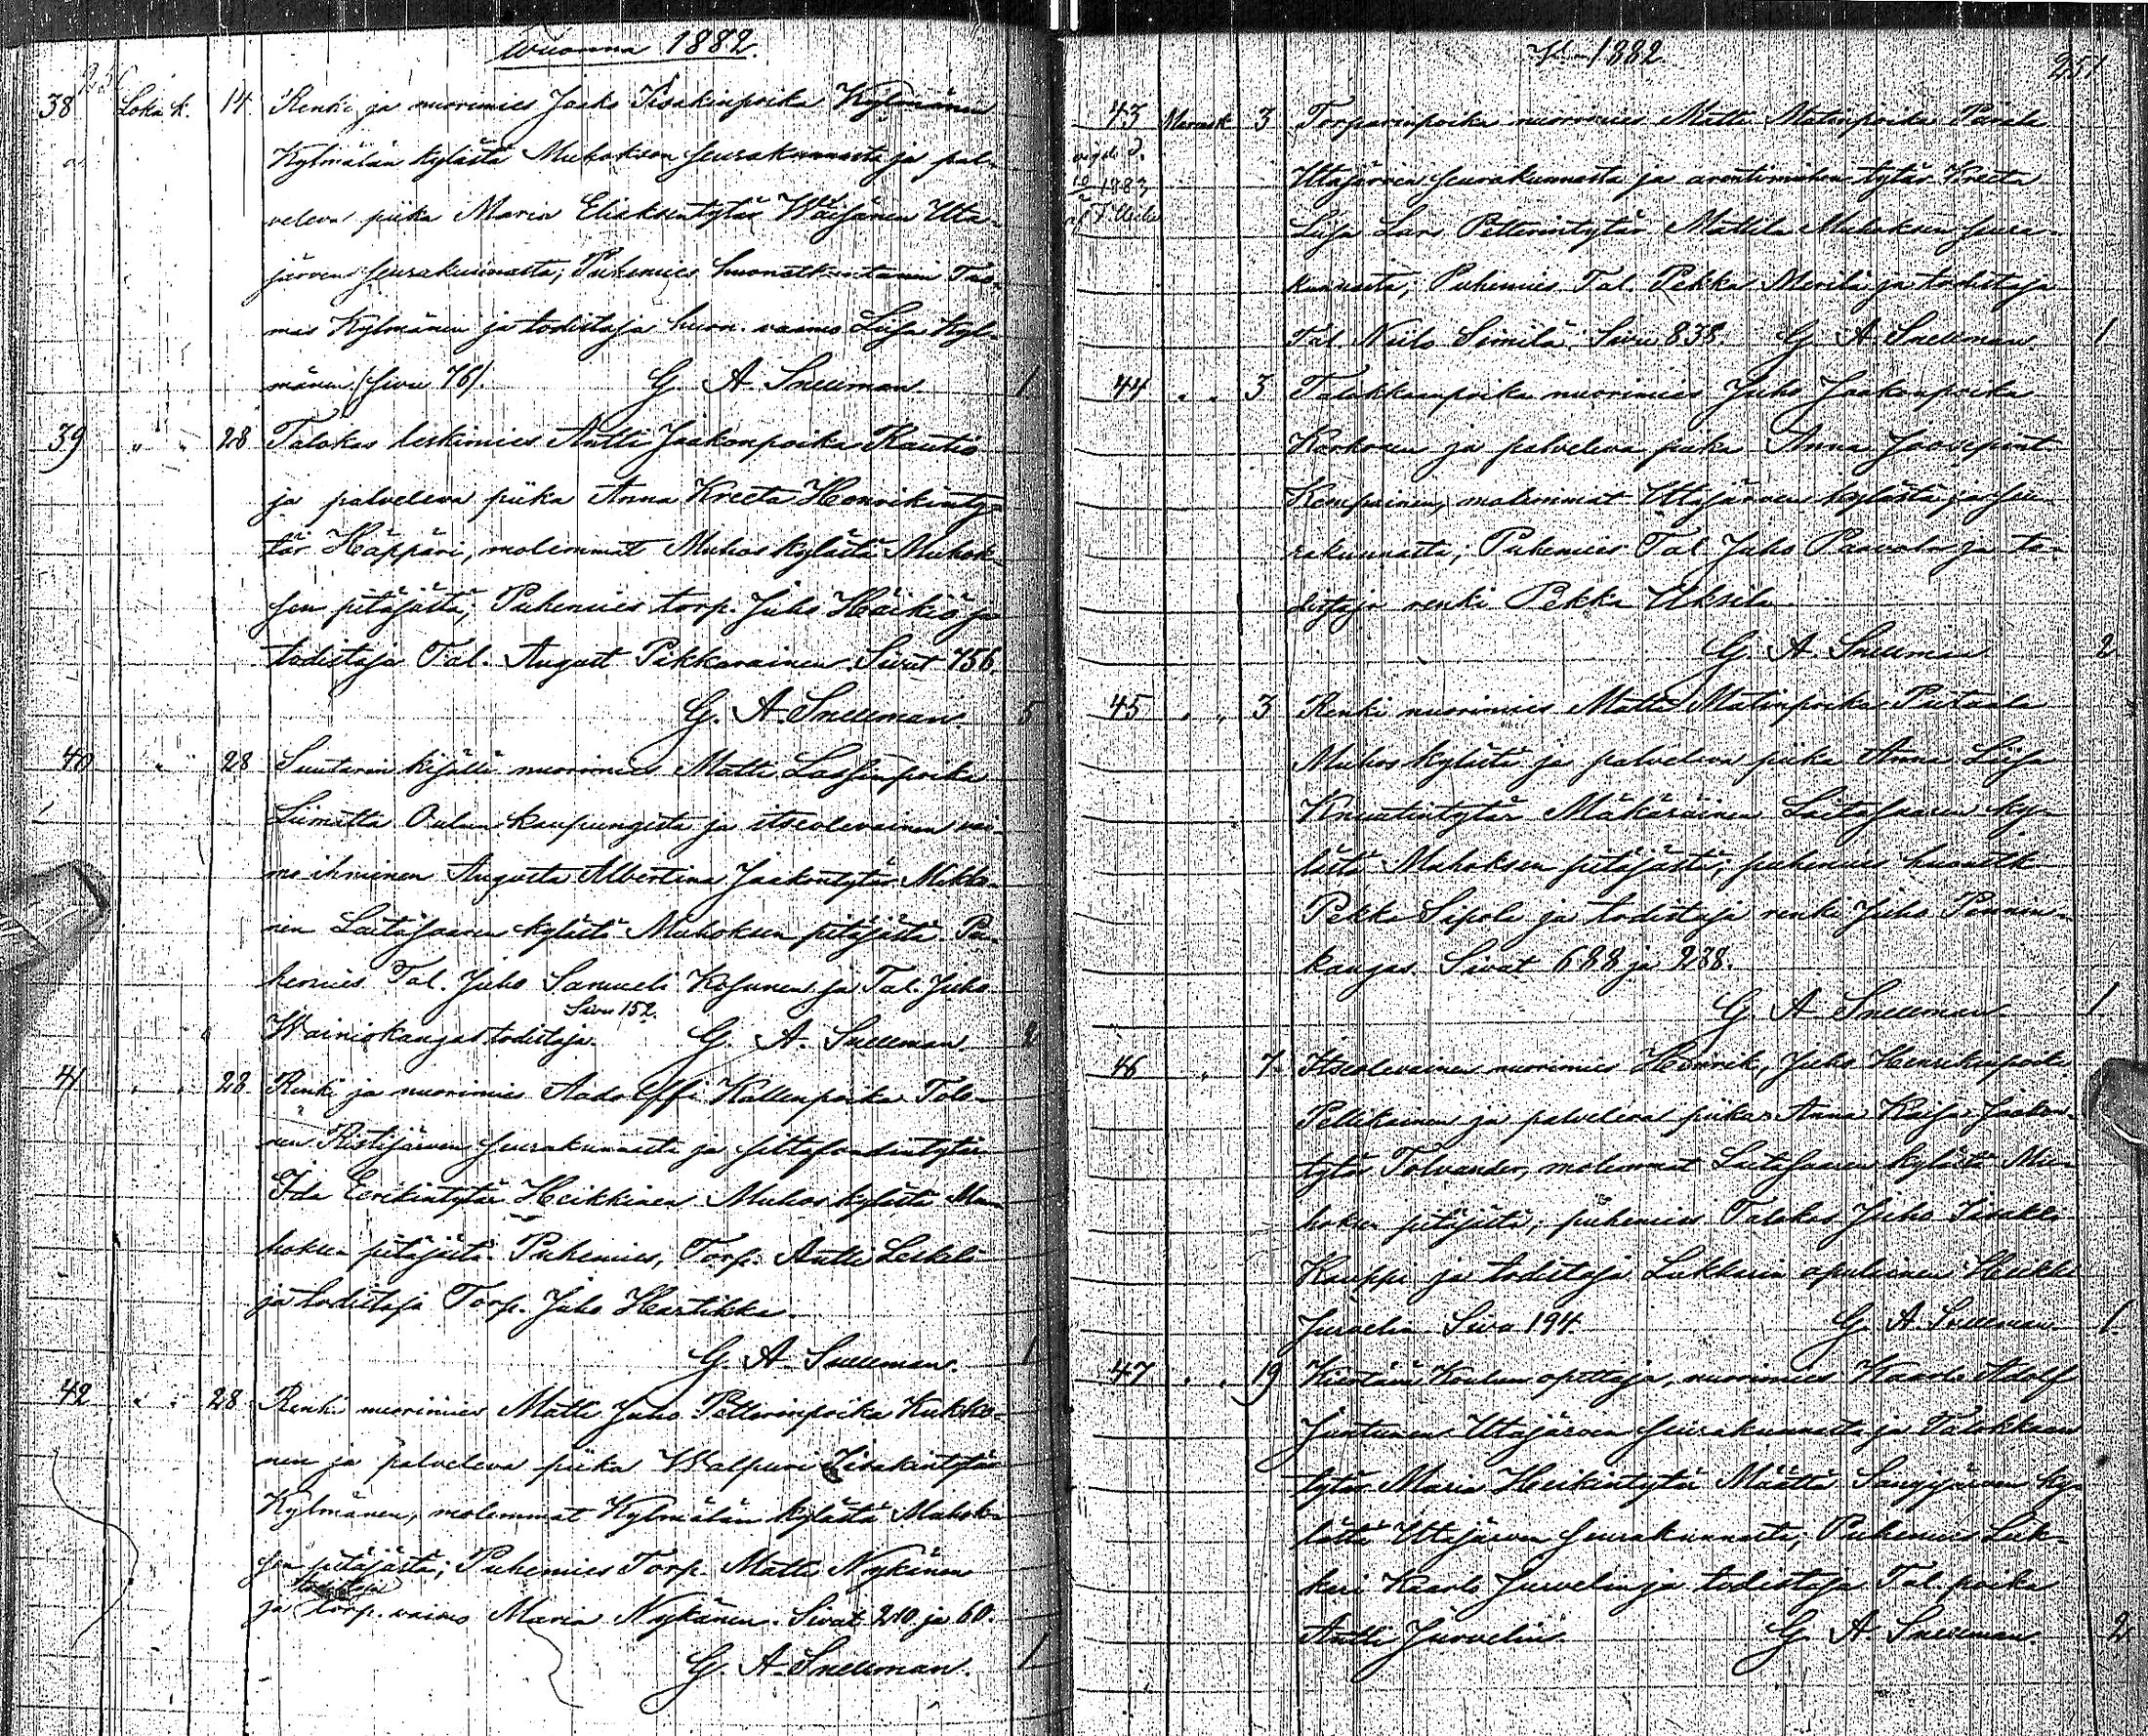 wuonna 1882.
38 Loka k. 14. Renki ja nuorimies Jaako Iisakinpoika Kylmänen
Kylmälän kylästä Muhoksen seurakunnasta ja pal-
veleva piika Maria Eliaksentytär Wäisänen Uta-
järven seurakunnasta; Puhemies huoneenh. Tuo-
mas Kylmänen ja todistaja huon. vaimo Liisa Kyl-
mänen (Sivu 76). G. A. Snellman. 1
39 " " 28 Talokas leskimies Antti Jaakonpoika Kautio
ja palveleva piika Anna Kreeta Henrikinty-
tär Häppäri, molemmat Muhos kylästä Muhok-
sen pitäjästä; Puhemies torp. Juho Häikiö ja
todistaja Tal. August Pikkarainen. Sivut 756.
G. A. Snellman. 5
40 " " 28 Suutarin kisälli nuorimies Matti Lassinpoika
Liimatta Oulun kaupungista ja itseolevainen vai-
mo ihminen Augusta Albertina Jaakontytär Mikko-
nen Laitasaaren kylästä Muhoksen pitäjästä. Pu-
hemies Tal. Juho Samueli Kosunen ja Tal. Juho
Sivu 152.
Wainiokangas todistaja. G. A. Snellman. 2
41 " " 28. Renki ja nuorimies Aadolffi Kallenpoika Tolo-
nen Ristijärven seurakunnasta ja
Ida Eerikintytär Heikkinen Muhos kylästä Mu-
hoksen pitäjästä. Puhemies, Torp. Antti Leskelä
ja todistaja Torp. Juho Hartikka.
G. A. Snellman. 1
42 " " 28 Renki nuorimies Matti Juho Petterinpoika Kukko-
nen ja palveleva piika Walpuri Iisakintytär
Kylmänen, molemmat Kylmälän kylästä Muhok-
sen pitäjästä; Puhemies Torp. Matti Nykänen
todistaja
ja torp. vaimo Maria Nykänen. Sivat 210 ja 60.
G. A. Snellman. 1
1882
251
43 Marrask 3 Torparinpoika nuorimies Matti Matinpoika
1883
Utajärven seurakunnasta ja arentimiehen tytär Kreeta
Liisa Lars Petterintytär Mattila Muhoksen seura-
kunnasta; Puhemies Tal. Pekka Merilä ja todistaja
Tal. Niilo Similä. Sivu 838. G. A. Snellman 1
44 " " 3 Talokkaanpoika nuorimies Juho Jaakonpoika
Korkonen ja palveleva piika Anna Joosepint.
Kemppainen, molemmat Utajärven kylästä ja seu-
rakunnasta; Puhemies Tal. Juho Paavola ja to-
distaja renki Pekka Uksila
G. A. Snellman 2
45 " " 3 Renki nuorimies Matti Matinpoika Pietaala
Muhos kylästä ja palveleva piika Anna Liisa
Knuutintytär Mäkäräinen Laitasaaren ky-
lästä Muhoksen pitäjästä; puhemies
Pekka Sipola ja todistaja renki Juho Pennin-
kangas. Sivat 688 ja 238.
G. A. Snellman. 1
46 " 7. Itseolevainen nuorimies Henrik, Juho Henrikinpoika
Pellikainen ja palveleva piika Anna Kaisa Jaakon-
tytär Tolvander, molemmat Laitasaaren kylästä Mu-
hoksen pitäjästä; puhemies Talokas Juho Iisakki
Kauppi ja todistaja Lukkarin apulainen Heikki
Jurvelin. Sivu 194. G. A. Snellman. 1.
47 " " 19 Kiertävä Koulun opettaja, nuorimies Kaarlo Adolf
Juntunen Utajärven seurakunnasta ja Talokkaan
tytär Maria Heikintytär Määttä Sanginjärven ky-
lästä Utajärven seurakunnasta; Puhemies Luk-
kari Kaarlo Jurvelin ja todistaja Tal. poika
Antti Jurvelin. G. A. Snellman. 2